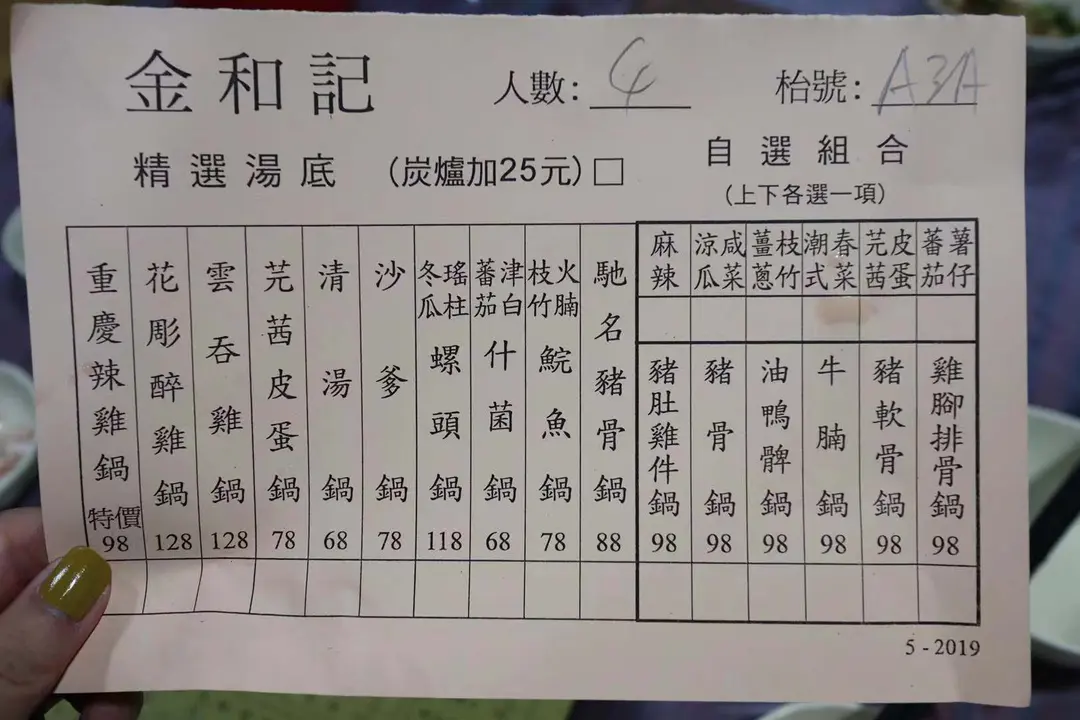 金和記
人數: 4
枱號: A3A
精選湯底 (炭爐加25元)
重慶辣雞鍋 特價 98
花彫醉雞鍋 128
雲吞雞鍋 128
芫茜皮蛋鍋 78
清湯鍋 68
沙爹鍋 78
冬瓜瑤柱螺頭鍋 118
蕃茄津白什菌鍋 68
枝竹火腩鯇魚鍋 78
馳名豬骨鍋 88
自選組合
(上下各選一項)
麻辣
涼瓜咸菜
薑蔥枝竹
潮式春菜
芫茜皮蛋
蕃茄薯仔
豬肚雞件鍋 98
豬骨鍋 98
油鴨髀鍋 98
牛腩鍋 98
豬軟骨鍋 98
雞腳排骨鍋 98
5 - 2019